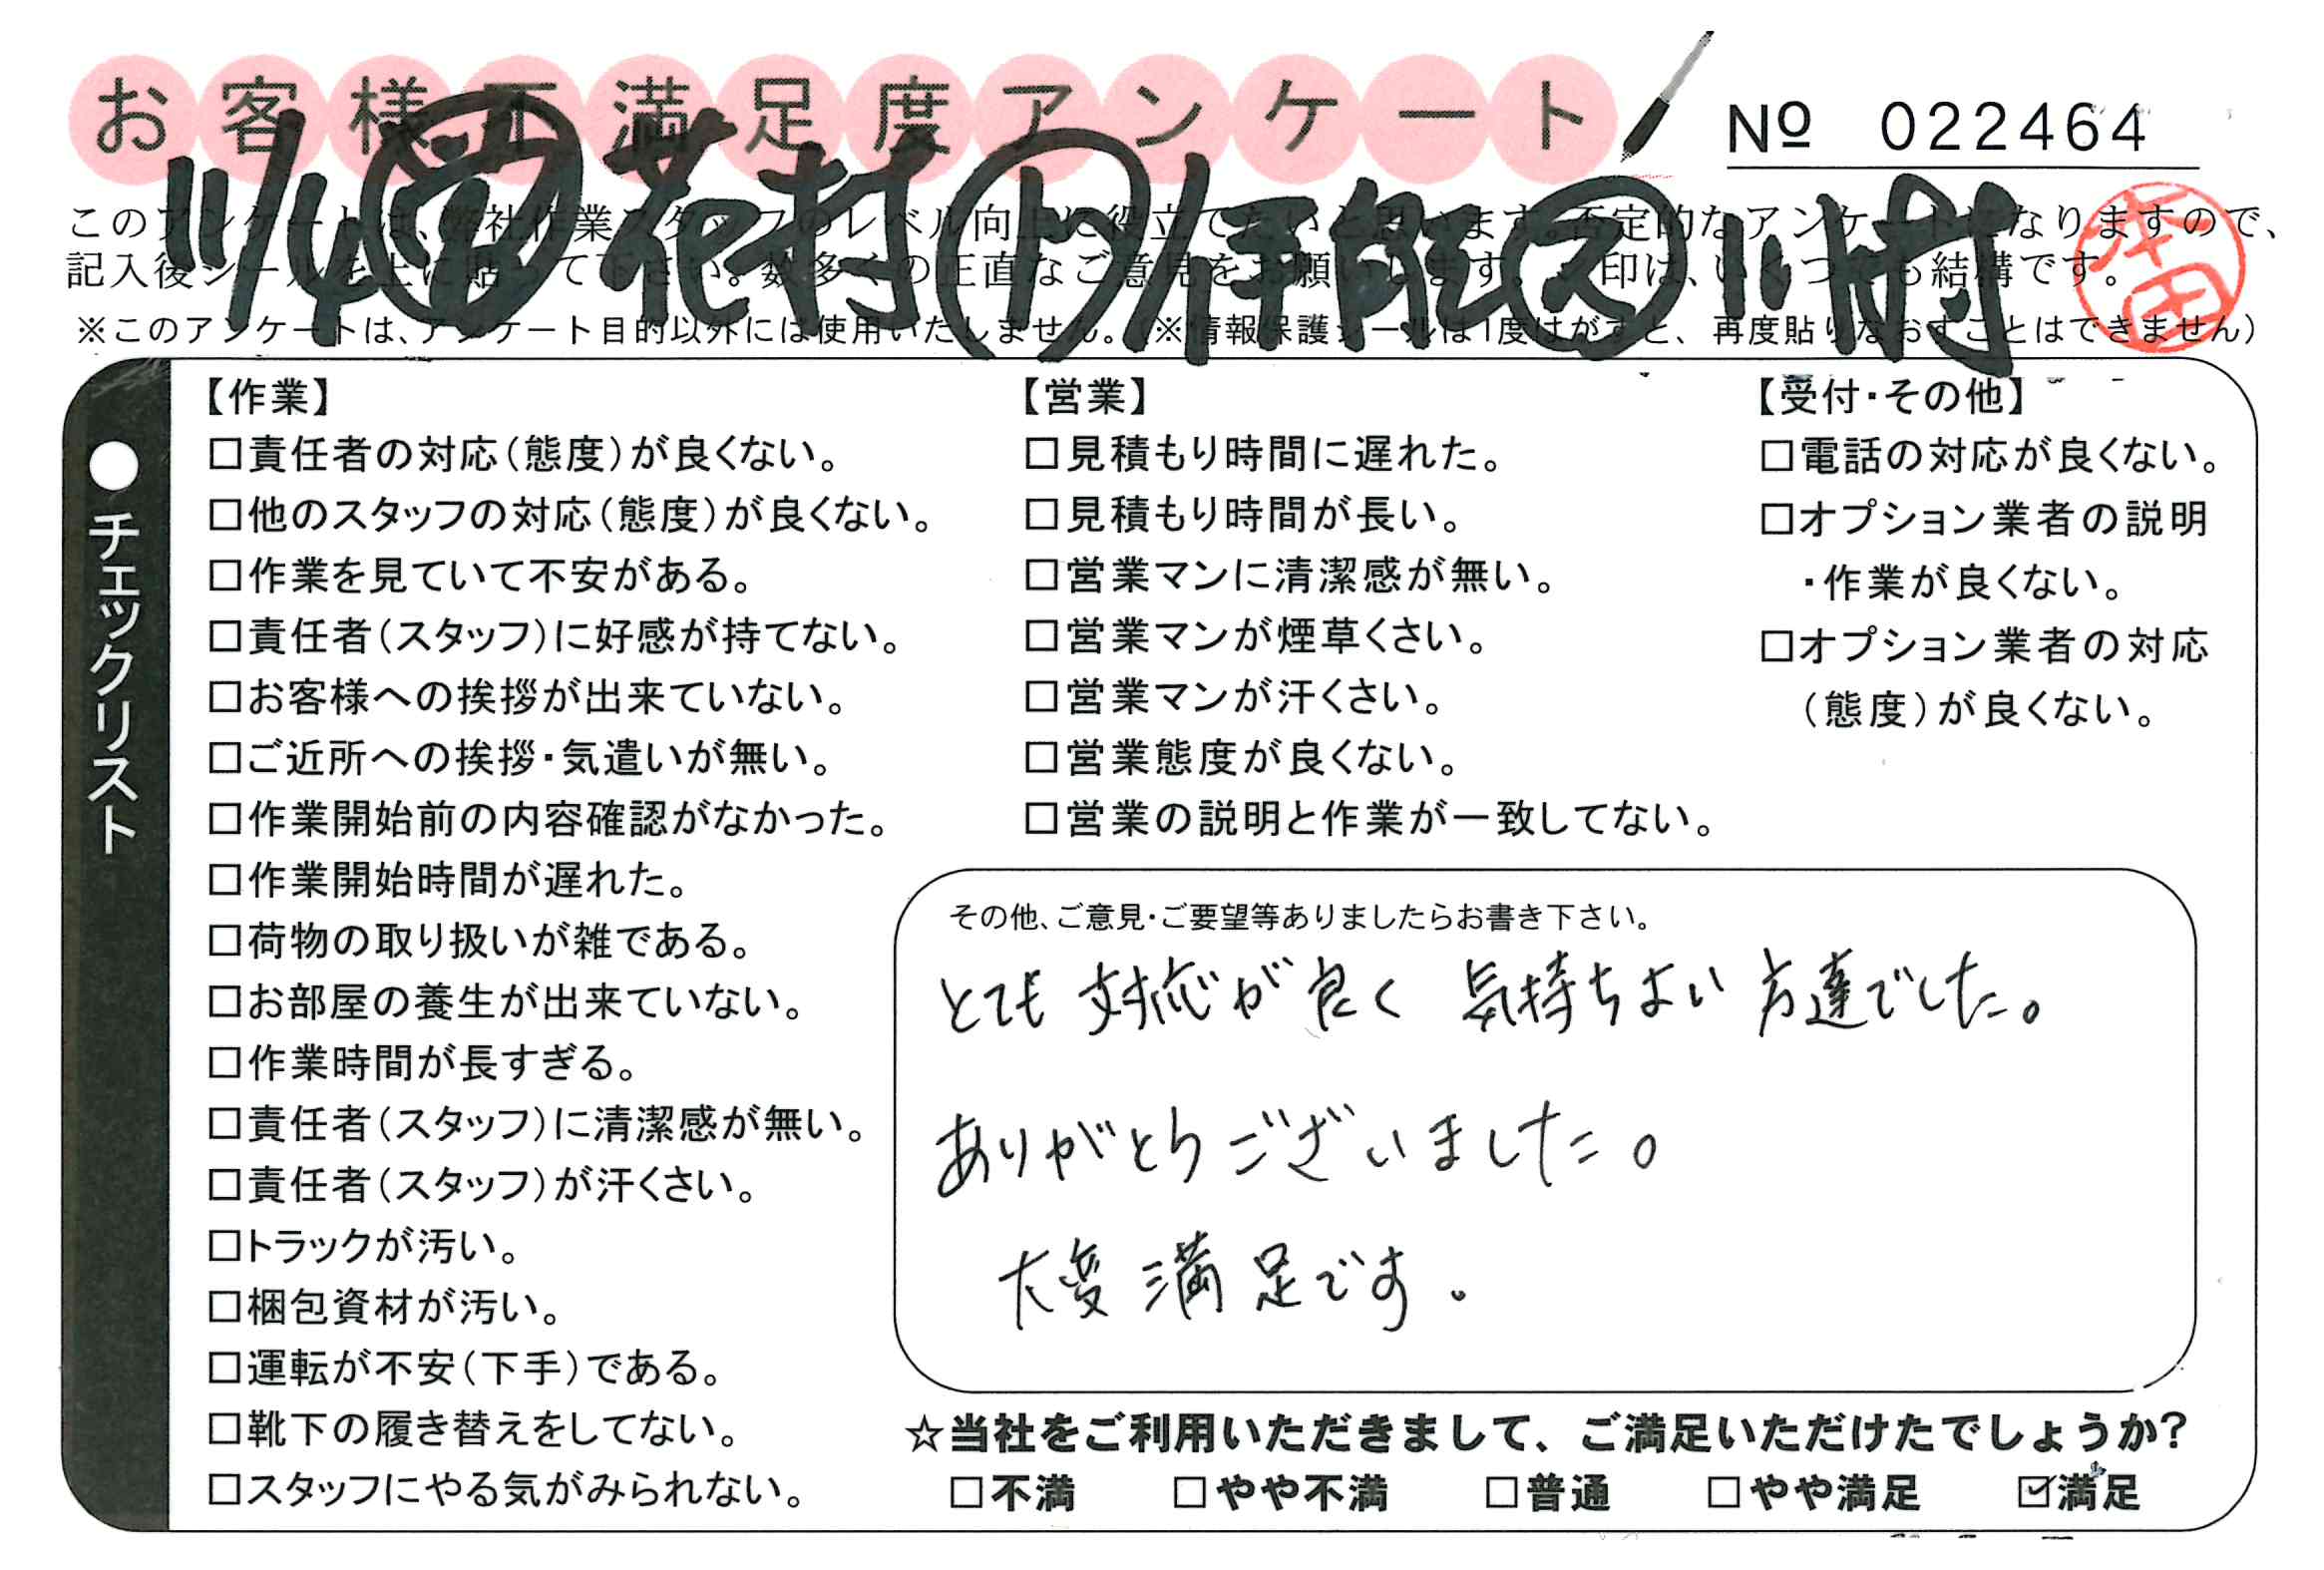 お客様不満足度アンケート
№ 022464
11/4 営 花村 ド 伊能 ス 小村
このアンケートは、弊社作業スタッフのレベル向上に役立てたいと思います。否定的なアンケートになりますので、
記入後シールを上に貼って下さい。数多くの正直なご意見をお願いします。 印は、いくつでも結構です。
※このアンケートは、アンケート目的以外には使用いたしません。(※情報保護シールは1度はがすと、再度貼りなおすことはできません)
●チェックリスト
【作業】
□責任者の対応(態度)が良くない。
□他のスタッフの対応(態度)が良くない。
□作業を見ていて不安がある。
□責任者(スタッフ)に好感が持てない。
□お客様への挨拶が出来ていない。
□ご近所への挨拶・気遣いが無い。
□作業開始前の内容確認がなかった。
□作業開始時間が遅れた。
□荷物の取り扱いが雑である。
□お部屋の養生が出来ていない。
□作業時間が長すぎる。
□責任者(スタッフ)に清潔感が無い。
□責任者(スタッフ)が汗くさい。
□トラックが汚い。
□梱包資材が汚い。
□運転が不安(下手)である。
□靴下の履き替えをしてない。
□スタッフにやる気がみられない。
【営業】
□見積もり時間に遅れた。
□見積もり時間が長い。
□営業マンに清潔感が無い。
□営業マンが煙草くさい。
□営業マンが汗くさい。
□営業態度が良くない。
□営業の説明と作業が一致してない。
【受付・その他】
□電話の対応が良くない。
□オプション業者の説明
・作業が良くない。
□オプション業者の対応
(態度)が良くない。
その他、ご意見・ご要望等ありましたらお書き下さい。
とても対応が良く 気持ちよい方達でした。
ありがとうございました。
大変満足です。
☆当社をご利用いただきまして、ご満足いただけたでしょうか?
□不満 □やや不満 □普通 □やや満足 ☑満足